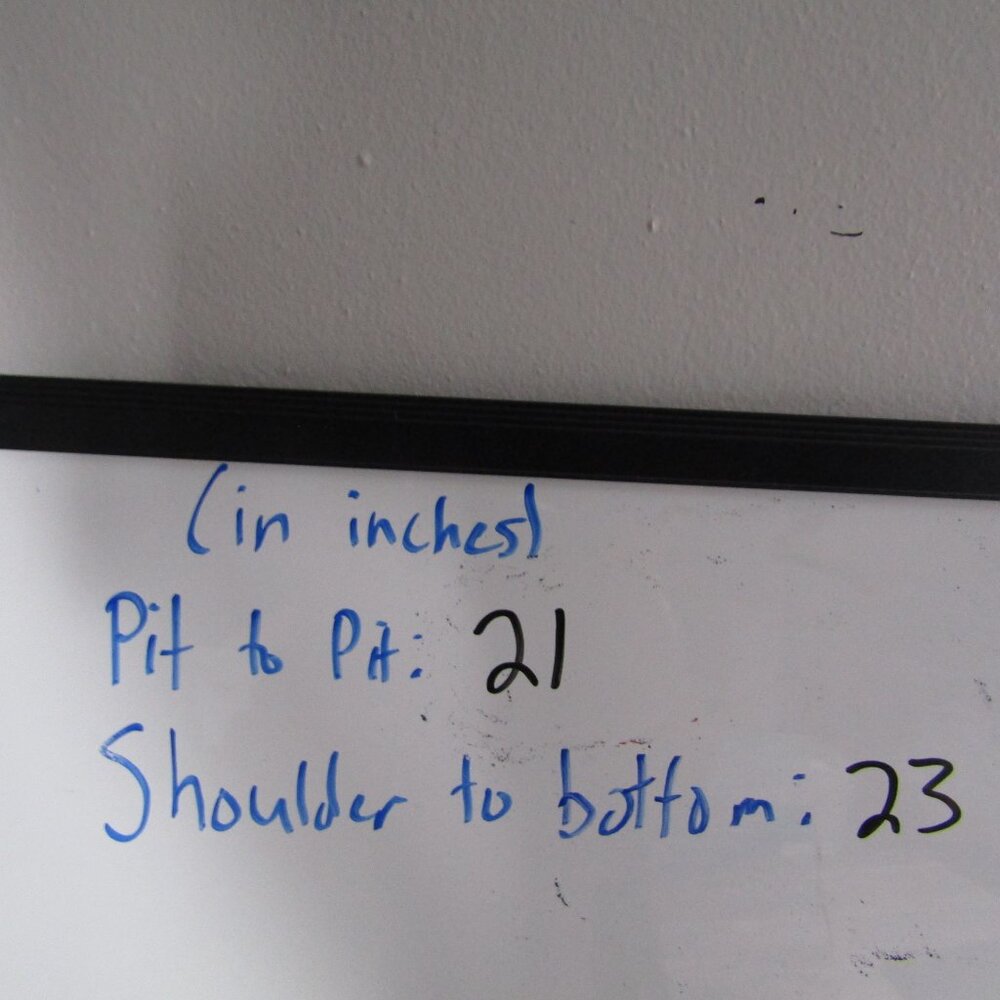 (in inches)
Pit to Pit: 21
Shoulder to bottom: 23